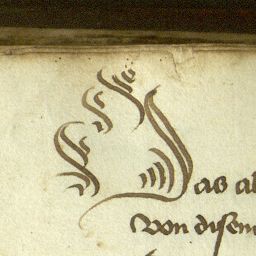 Das al
von disem